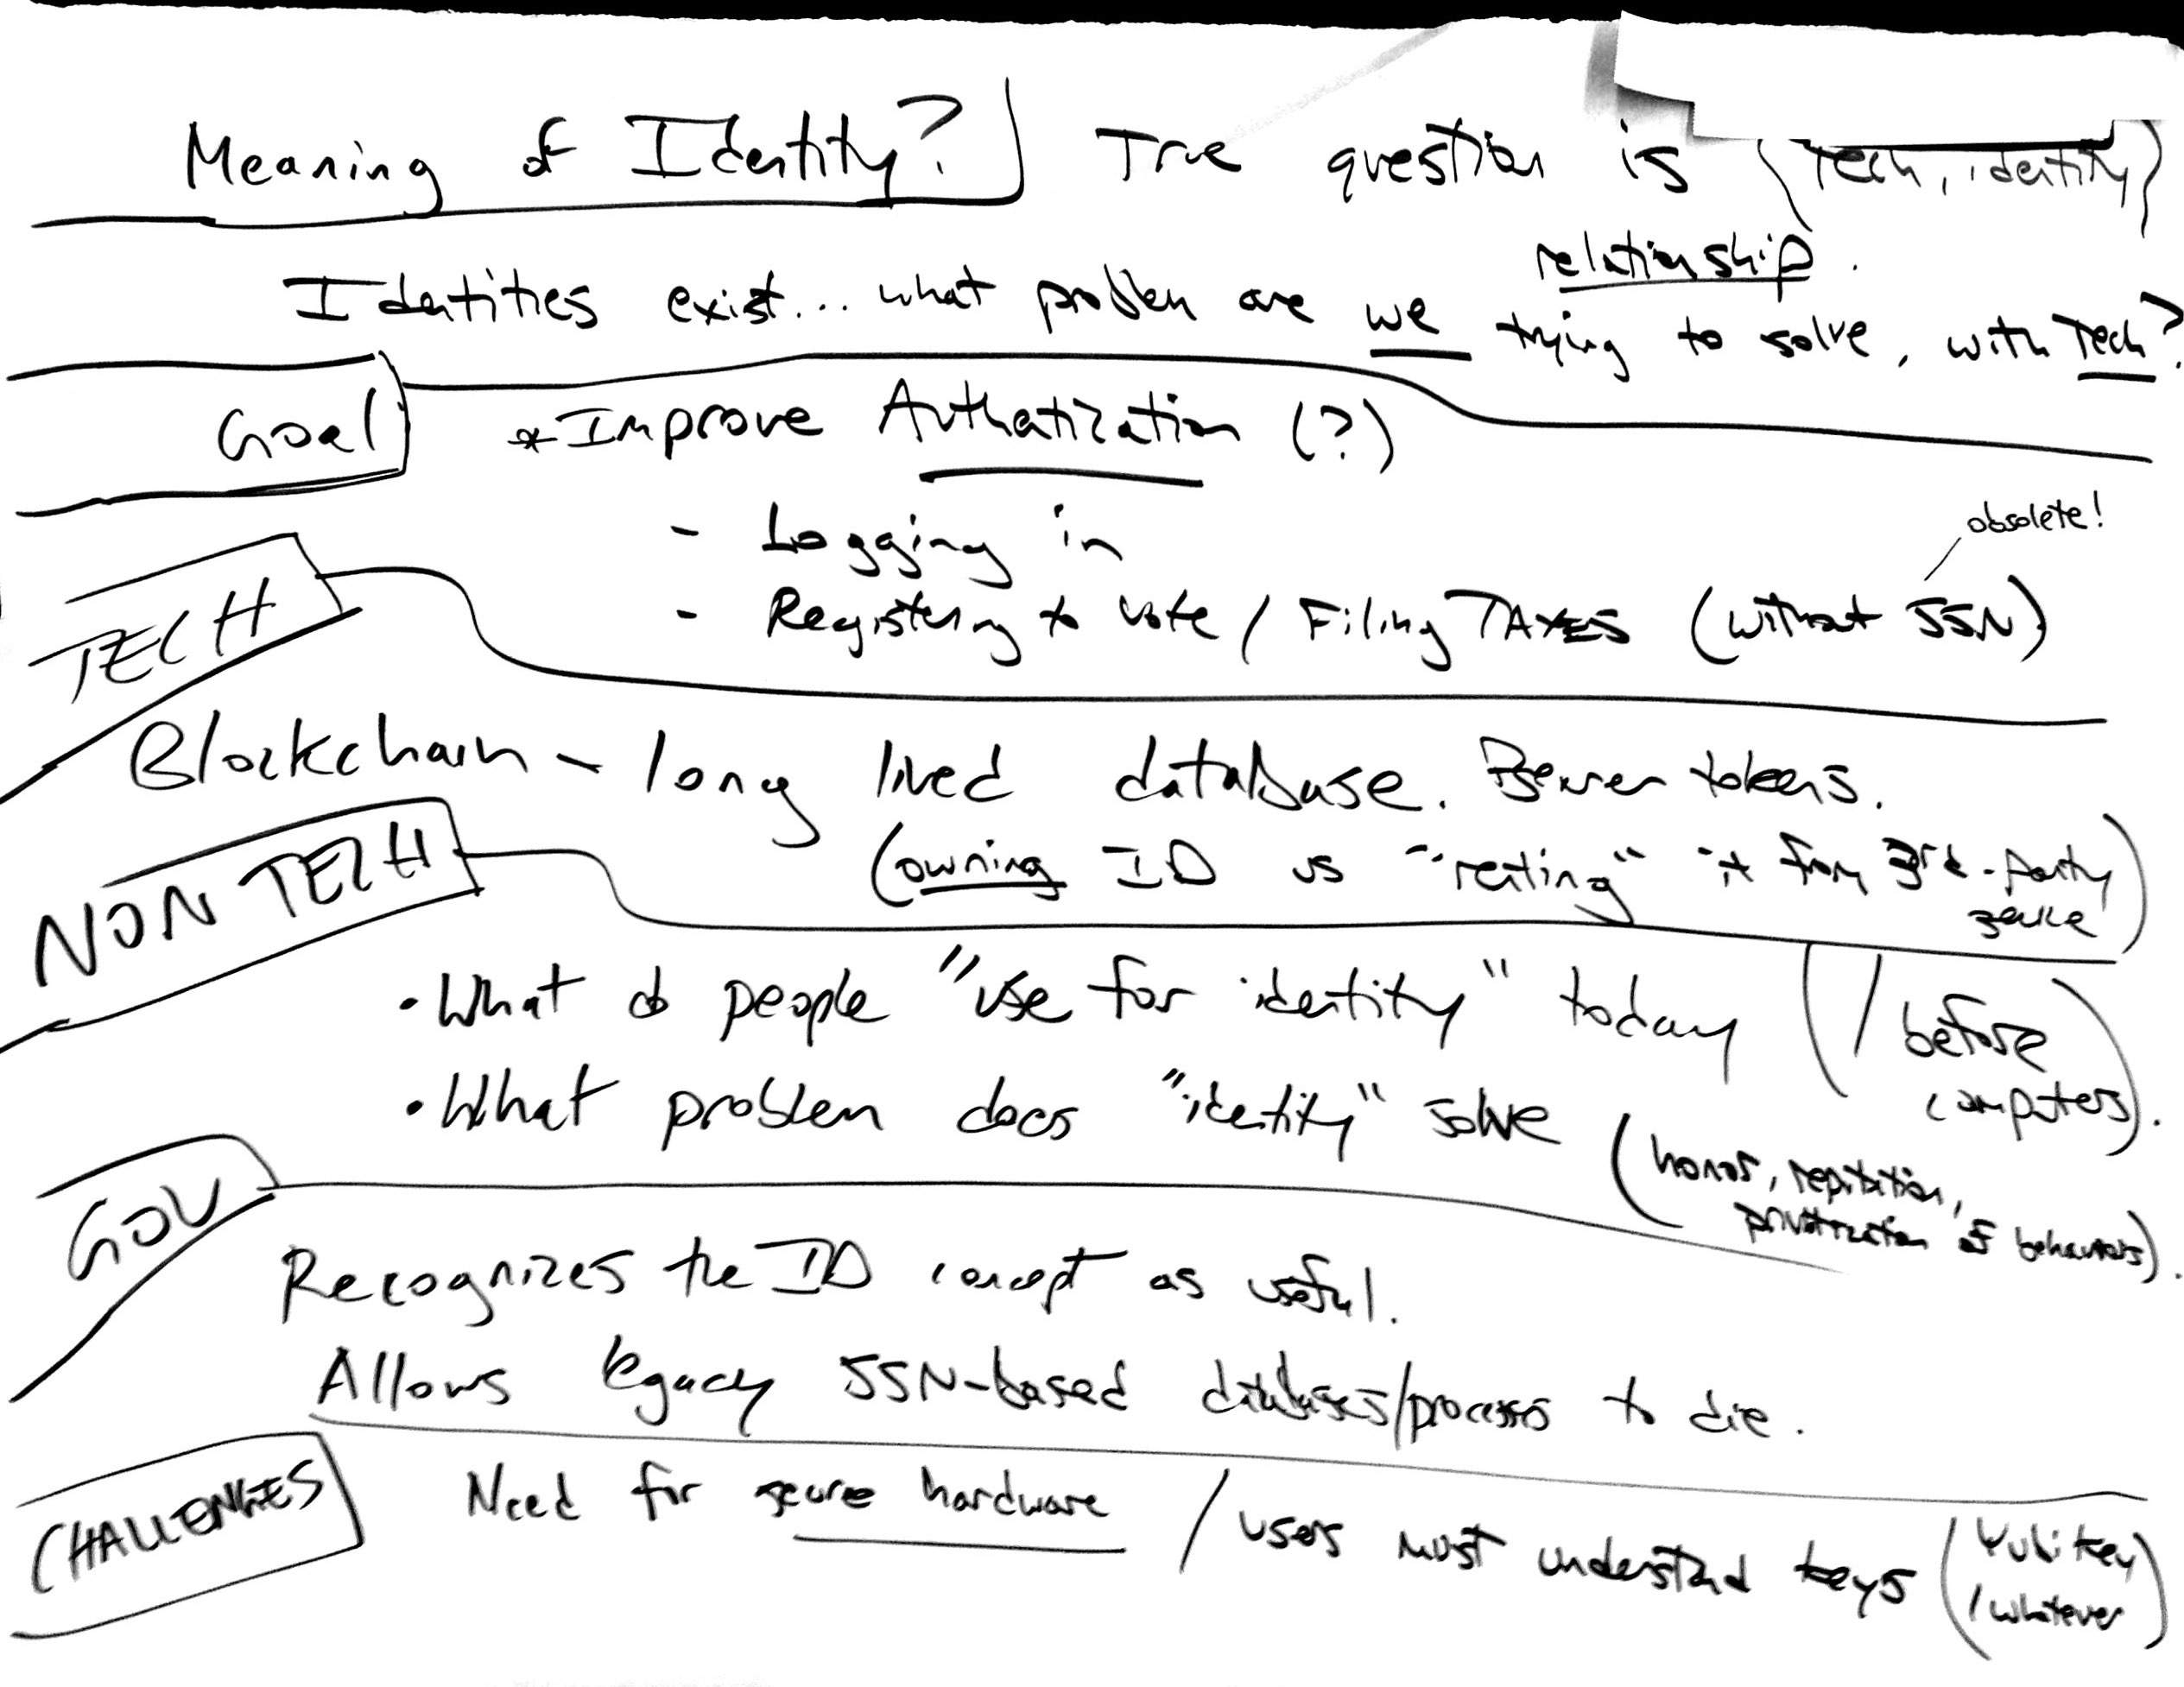 Meaning of Identity? True question is (Tech, identity)
relationship.
Identities exist... what problem are we trying to solve, with Tech?
Goal *Improve (?)
- Logging in
obsolete!
- Registering to vote / Filing TAXES (without SSN)
TECH
Blockchain - long lived database. Bearer tokens.
(owning ID vs "renting" it from 3rd-party service)
NON TECH
• What do people "use for identity" today (/ before computers).
• What problem does "identity" solve (honor, reputation, privatization of behaviors).
GOV
Recognizes the ID concept as useful.
Allows legacy SSN-based databases/processes to die.
CHALLENGES Need for secure hardware / users must understand keys (Yubikey / whatever)